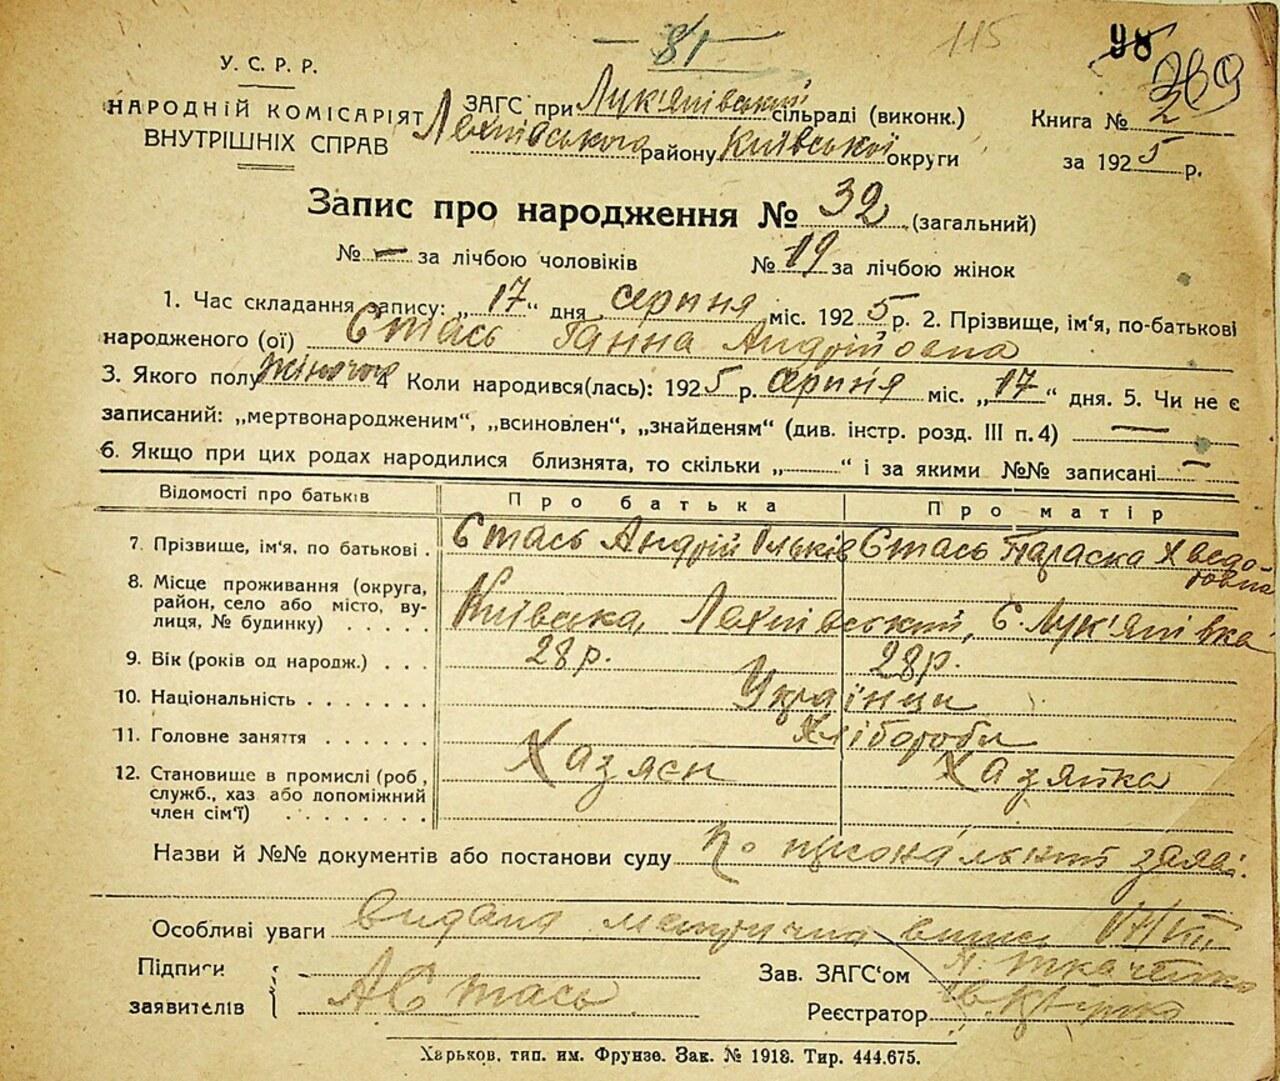 81 115 98
У. С. Р. Р. 269
НАРОДНІЙ КОМІСАРІЯТ ЗАГС при Лук'янівський сільраді (виконк.) Книга № 2
ВНУТРІШНІХ СПРАВ району Київської округи за 1925 р.
Запис про народження № 32 (загальний)
№ — за лічбою чоловіків № 19 за лічбою жінок
1. Час складання запису: „17“ дня серпня міс. 1925 р. 2. Прізвище, ім'я, по-батькові
народженого (ої) Стась Ганна Андрійовна
3. Якого полу жіночого 4 Коли народився(лась): 1925 р. серпня міс. „17“ дня. 5. Чи не є
записаний: „мертвонародженим“, „всиновлен“, „знайденям“ (див. інстр. розд. III п. 4) —
6. Якщо при цих родах народилися близнята, то скільки „ “ і за якими №№ записані —
Відомості про батьків Про батька Про матір
7. Прізвище, ім'я, по батькові . Стась Андрій Стась Параска Хведо-
товна
8. Місце проживання (округа,
район, село або місто, ву-
лиця, № будинку) . . . . . Київська, с. Лук'янівка
9. Вік (років од народж.) . . . 28 р. 28 р.
10. Національність . . . . . . . Українци
11. Головне заняття . . . . . . Хлібороби
12. Становище в промислі (роб, Хазяєн Хазяйка
служб., хаз або допоміжний
член сім'ї) . . . . . . . .
Назви й №№ документів або постанови суду По заяві.
Особливі уваги видана метрична випись
Підписи Зав. ЗАГС'ом Ткаченко
заявителів АСтась Реєстратор
Харьков, тип. им. Фрунзе. Зак. № 1918. Тир. 444.675.